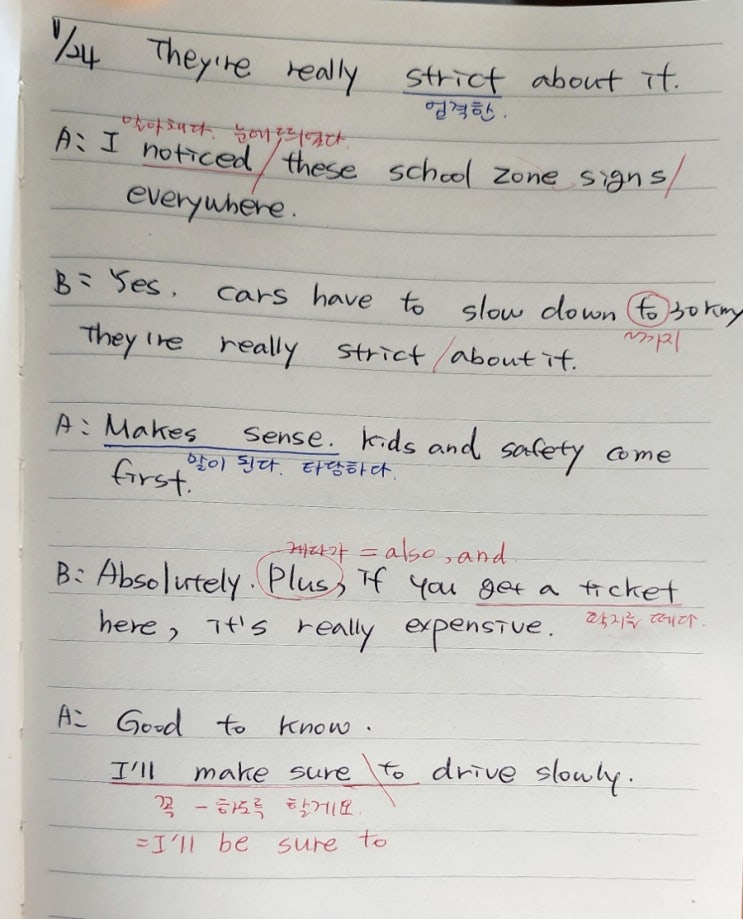 1/24 They're really strict about it.
엄격한.
알아채다. 눈에 띄다.
A: I noticed / these school zone signs /
everywhere.
B: Yes. cars have to slow down to 30 km/
까지
They're really strict / about it.
A: Makes sense. kids and safety come
말이 된다. 타당하다.
first.
게다가 = also, and
B: Absolutely. Plus, if you get a ticket
딱지를 떼다.
here, it's really expensive.
A: Good to know.
I'll make sure \ to drive slowly.
꼭 - 하도록 할게요.
= I'll be sure to